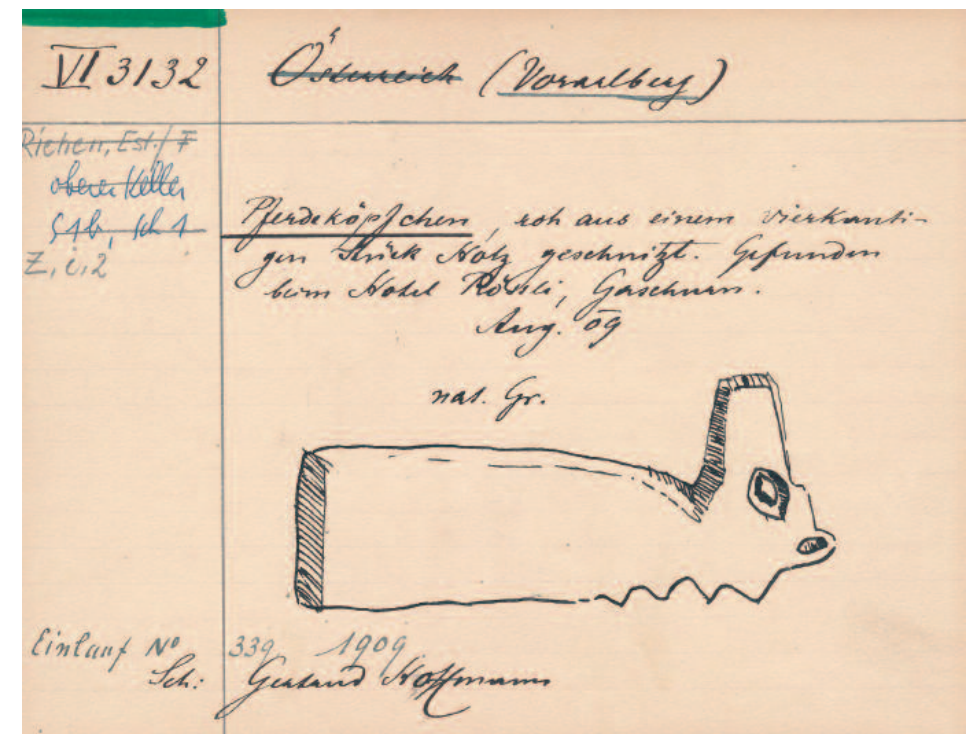 VI 3132
Österreich (Vorarlberg)
Riehen, Est./F
oberer Keller
S1b, Sch 1
Z, i, 2
Pferdeköpfchen, roh aus einem vierkanti-
gen Stück Holz geschnitzt. Gefunden
beim Hotel Rössli, Gaschurn.
Aug. 09
nat. Gr.
Einlauf Nº 339 1909
Sch: Hoffmann